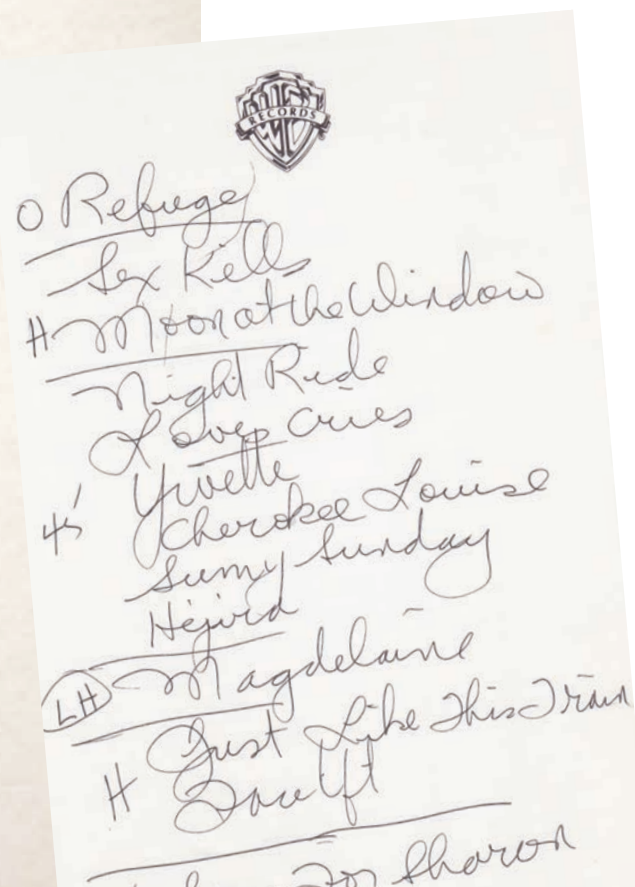 WB
RECORDS
O Refuge
Sex Kills
H Moon at the Window
Night Ride
Love's Cries
Yvette
45' Cherokee Louise
Sunny Sunday
Hejira
LH Magdelaine
Just Like This Train
H
For Sharon